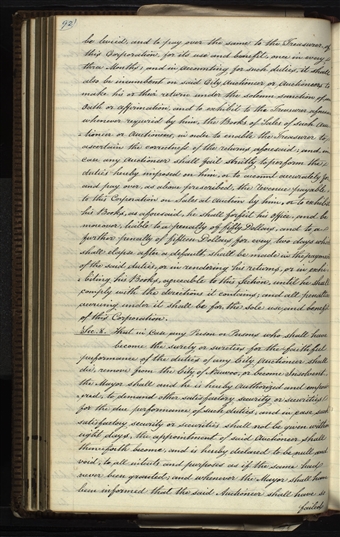 92
be levied, and to pay over the same to the Treasurer of
this Corporation for its use and benefit, once in every
three Months; and in accounting for such duties, it shall
also be incumbent on said City Auctioneer or Auctioneers to
make his or their return under the solemn sanction of an
oath or affirmation, and to exhibit to the Treasurer
whenever required by him, the Books of Sales of such Auc-
tioneer or Auctioneers, in order to enable the Treasurer to
ascertain the correctness of the returns aforesaid; and in
case any Auctioneer shall fail strictly to perform the
duties hereby imposed on him, or to account accurately for
and pay over, as above prescribed, the revenue payable
to this Corporation on Sales at Auction by him, or to exhibit
his Books, as aforesaid, he shall forfeit his office, and be
moreover, liable to a penalty of fifty Dollars, and to a
further penalty of fifteen Dollars for every two days which
shall elapse after a default shall be made in the payment
of the said duties, or in rendering his returns, or in exhi-
biting his Books, agreeable to this Section, until he shall
comply with the directions it contains; and all penalties
accruing under it shall be for the sole use and benefit
of this Corporation.
Sec. 8. That in case any Person or Persons who shall have
become the surety or sureties for the faithful
performance of the duties of any City Auctioneer, shall
die, remove from the City of Nauvoo, or become Insolvent,
the Mayor shall and he is hereby authorized and empow-
ered, to demand other satisfactory security or securities
for the due performance of such duties; and in case such
satisfactory security or securities shall not be given within
eight days, the appointment of said Auctioneer shall
thenceforth become, and is hereby declared to be null and
void, to all intents and purposes as if the same had
never been granted; and whenever the Mayor shall have
been informed that the said Auctioneer shall have so
failed